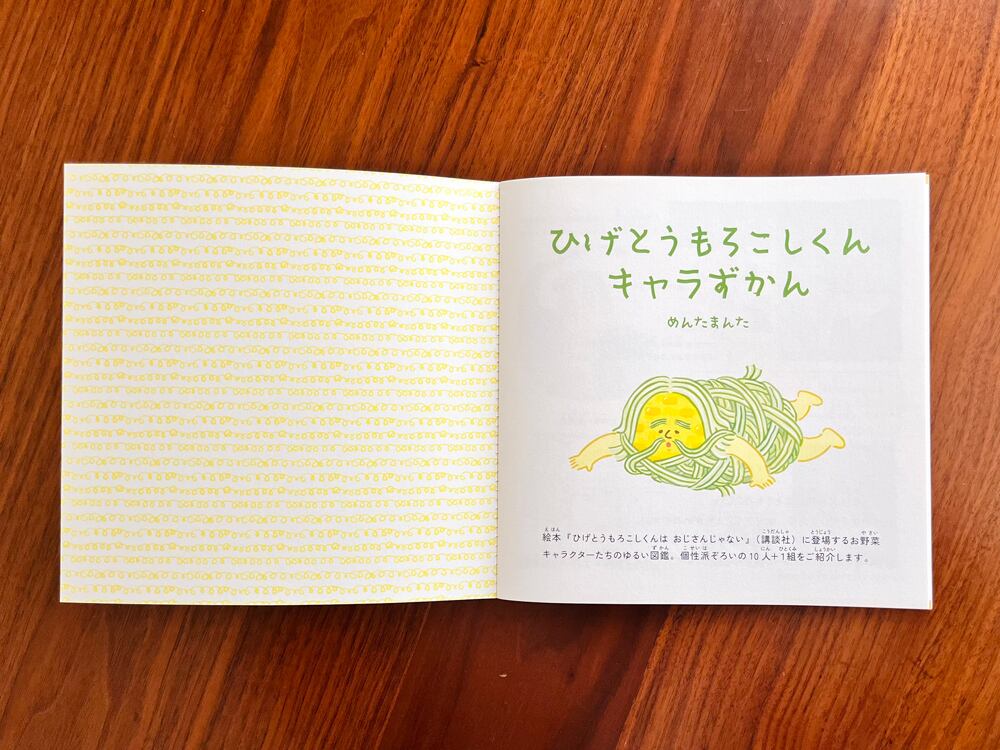 ひげとうもろこしくん
キャラずかん
めんたまんた
絵本『ひげとうもろこしくんは おじさんじゃない』(講談社)に登場するお野菜
キャラクターたちのゆるい図鑑。個性派ぞろいの10人+1組をご紹介します。